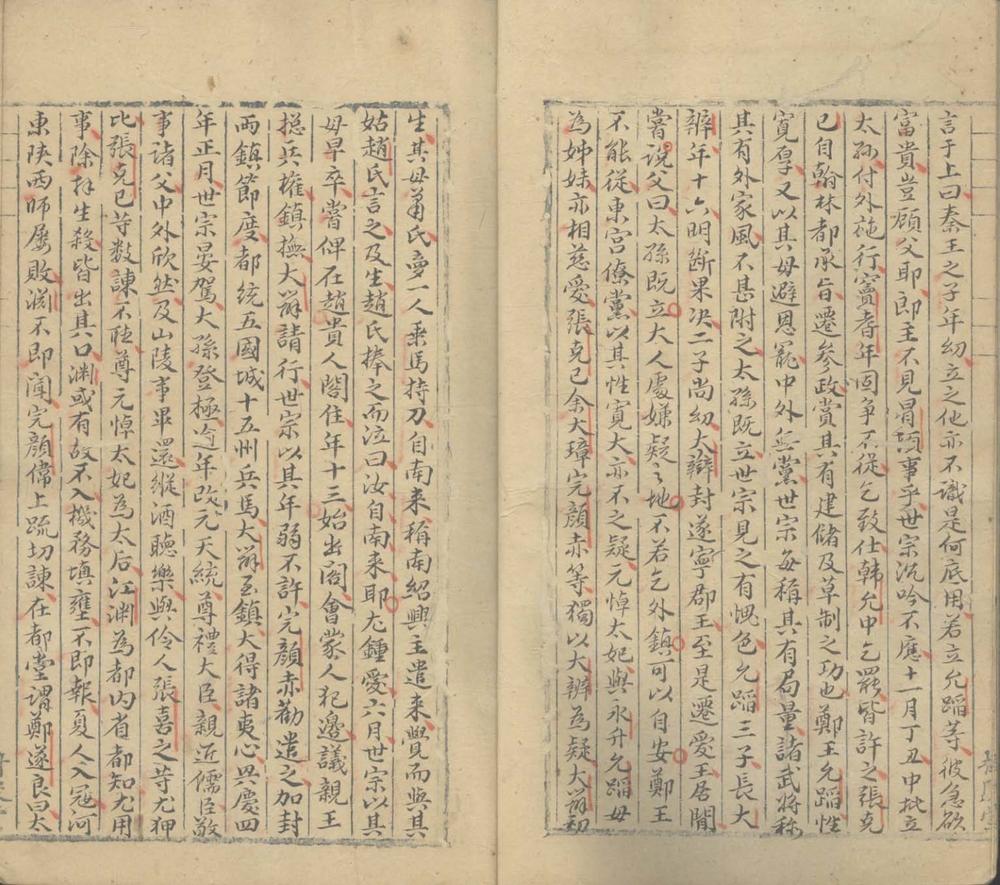 言于上曰秦王之子年幼立之他亦不識是何底用若立允蹈等彼急欲
富貴豈顧父耶郎主不見冒頓事乎世宗沉吟不應十一月丁丑中批立
太孫付外施行竇耆年固争不従乞致仕韓允中乞罷皆許之張克
已自翰林都承旨遷参政賞其有建儲及草制之功也鄭王允蹈性
寛厚又以其母避恩寵中外無黨世宗每稱其有局量諸武将称
其有外家風不甚附之太孫既立世宗見之有愧色允蹈三子長大
辨年十六明断果决二子尚幼大辨封遂寧郡王至是遷愛王居閒
嘗説父曰太孫既立大人處嫌疑之地不若乞外鎮可以自安鄭王
不能従東宫僚黨以其性寛大亦不之疑元悼太妃與永升允蹈母
為姊妹亦相慈愛張克已余大璋完顔赤等獨以大辨為疑大辨初
生其母萬氏夢一人乗馬持刀自南来稱南紹興主遣来覺而與其
姑趙氏言之及生趙氏捧之而泣曰汝自南来耶尤鍾愛六月世宗以其
母早卒嘗俾在趙貴人閤住年十三始出閤會蒙人犯邊議親王
揔兵權鎮撫大辨請行世宗以其年弱不許完顔赤勸遣之加封
両鎮節度都統五國城十五州兵馬大辨至鎮大得諸夷心興慶四
年正月世宗晏駕大孫登極逾年改元天統尊禮大臣親近儒臣敬
事諸父中外欣然及山陵事畢還縦酒聴樂與伶人張喜之等尤狎
比張克已等数諫不聴尊元悼太妃為太后江渊為都内省都知尤用
事除拜生殺皆出其口渊或有故不入機務填壅不即報夏人入冦河
東陕西師屢敗渊不即聞完顔偉上疏切諫在都堂謂鄭遂良曰太